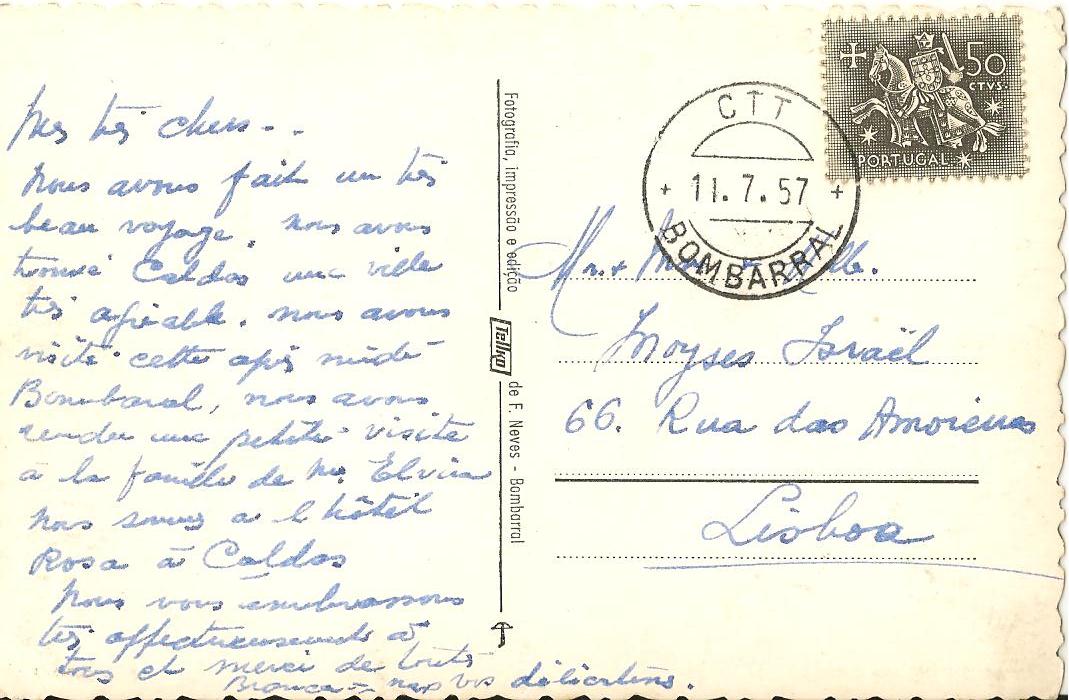 Mes très chers - -
Nous avons fait un très
beau voyage, nous avons
trouvé Caldas une ville
très agréable. nous avons
visité cette après midi
Bombaral, nous avons
rendu une petite visite
à la famille de Mr. Elvira
nous sommes a l hôtel
Rosa à Caldas
Nous vous embrassons
très affectueusement à
tous et merci de toutes
nos vos délicatesses.
Bianca
Fotografia, impressão e edição
Tellko
de F. Neves - Bombarral
CTT
+ 11.7.57 +
BOMBARRAL
50
CTVS.
PORTUGAL
Mr. + Mlle.
Moyses Israël
66. Rua das Amoreiras
Lisboa